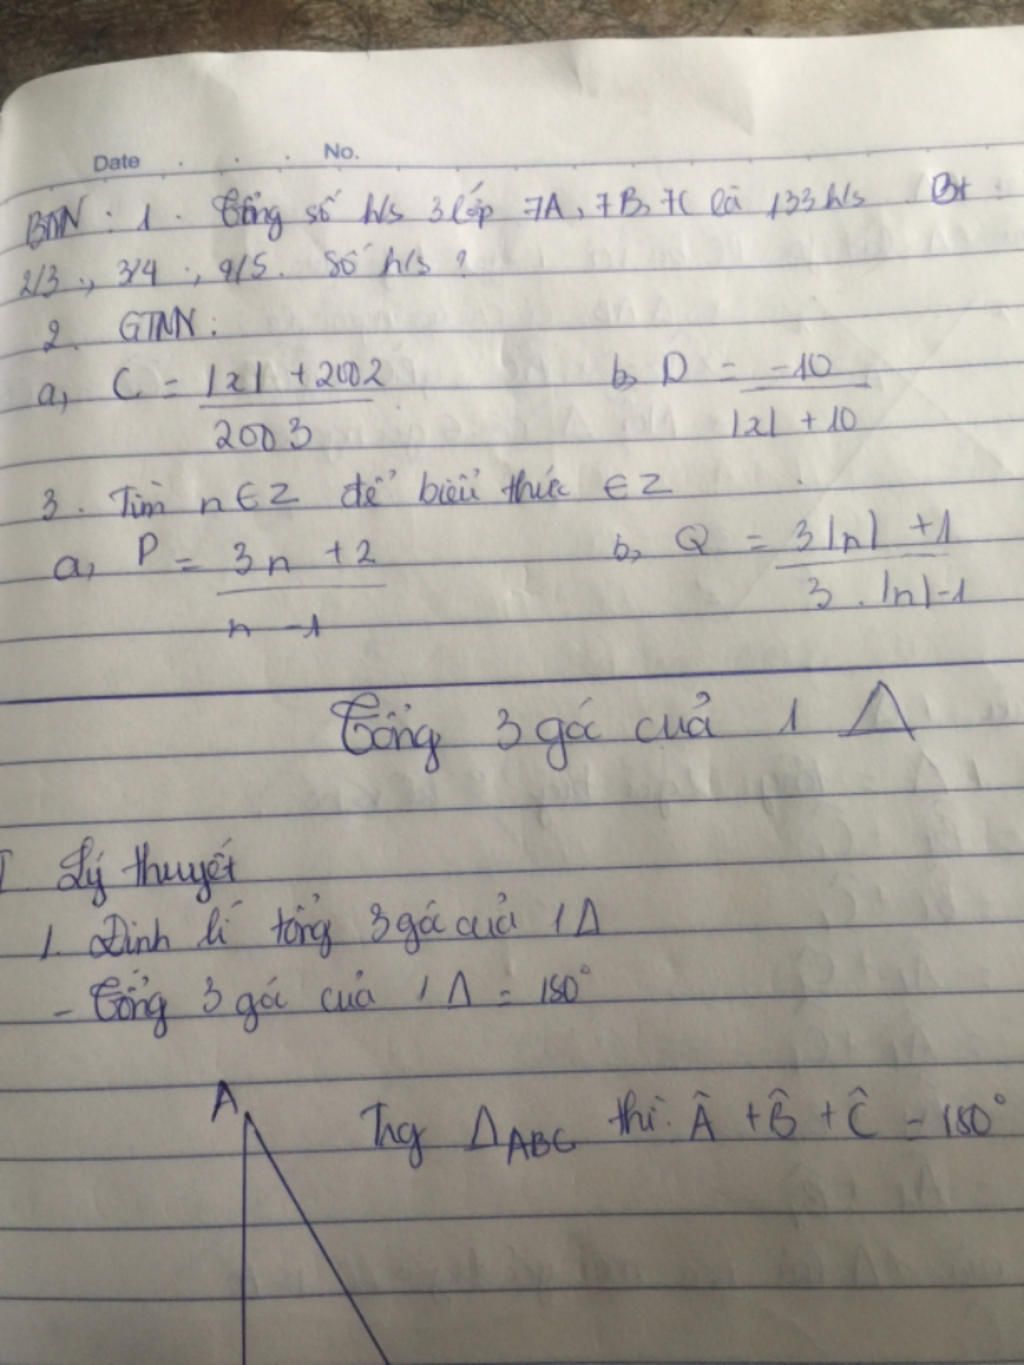 Date . . . No.
BTVN : 1 . Tổng số h/s 3 lớp 7A, 7B, 7C là 133 h/s . Bt
2/3 ., 3/4 ., 4/5 . Số h/s ?
2. GTNN :
a, C = |x| + 2002 / 2003 b, D = -10 / |x| + 10
3 . Tìm n ∈ Z để biểu thức ∈ Z
a, P = 3n + 2 / n - 1 b, Q = 3|n| + 1 / 3 . |n| - 1
Tổng 3 góc của 1 Δ
I Lý thuyết
1. Định lí tổng 3 góc của 1 Δ
- Tổng 3 góc của 1 Δ = 180°
A
Trg Δ ABC thì : Â + B̂ + Ĉ = 180°